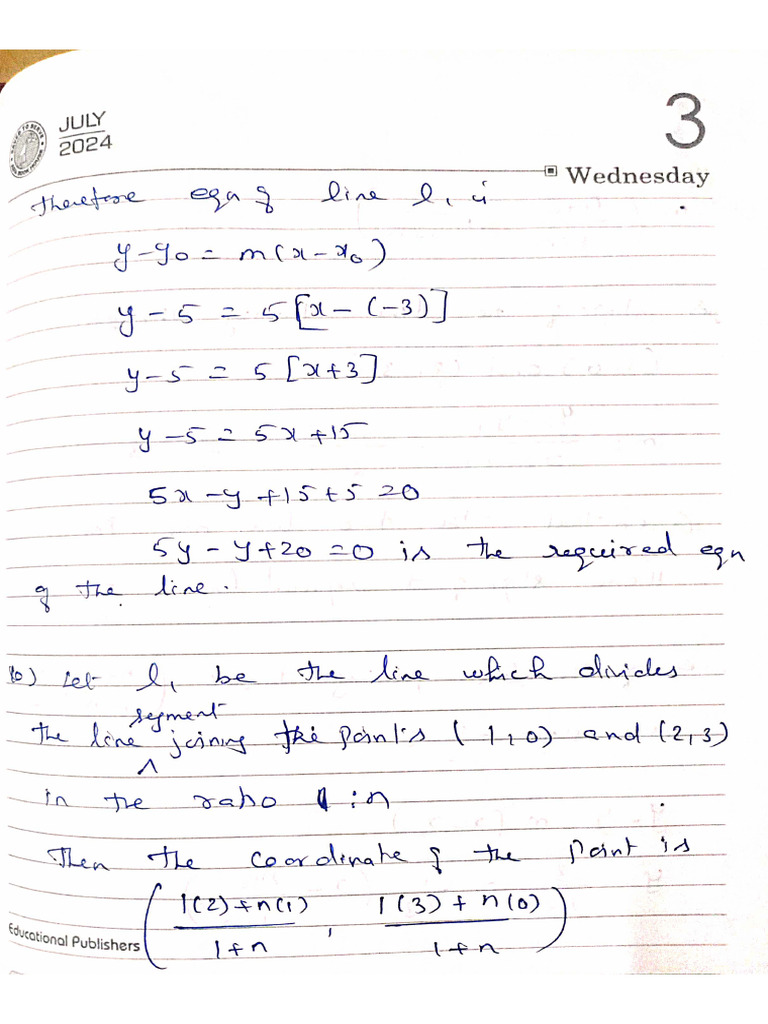 JULY
2024
3
Wednesday
therefore eqn of line l₁ is
y-y₀ = m(x-x₀)
y-5 = 5[x-(-3)]
y-5 = 5[x+3]
y-5 = 5x+15
5x-y+15+5=0
5y-y+20=0 is the required eqn
of the line.
10) Let l₁ be the line which divides
segment
the line ^ joining the points (1,0) and (2,3)
in the ratio 1:n
Then the coordinate of the point is
(1(2)+n(1)/1+n, 1(3)+n(0)/1+n)
Educational Publishers